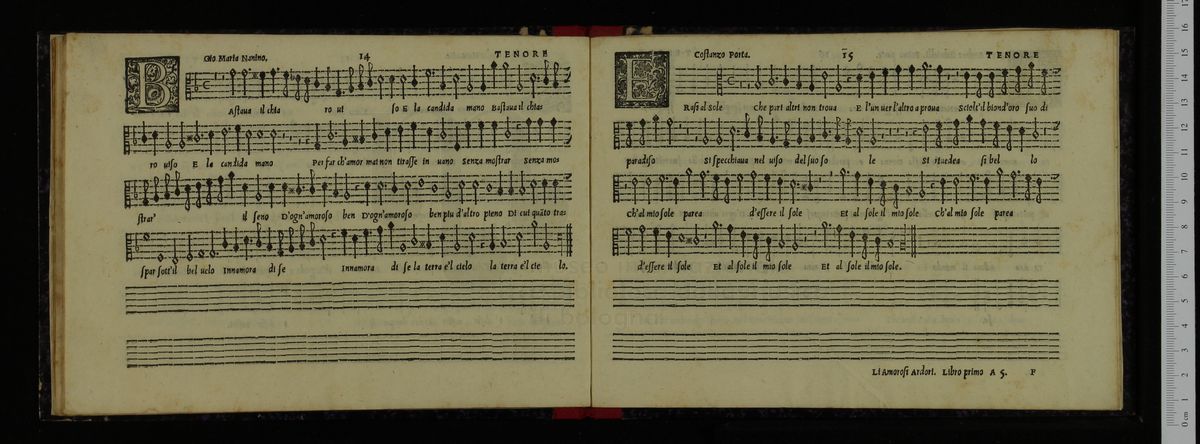 Gio. Maria Nanino. 14 TENORE
B Astaua il chia ro ui so E la candida mano Bastaua il chia:
ro uiso E la candida mano Per far ch'amor mai non tirasse in uano Senza mostrar senza mos
strar' il seno D'ogn'amoroso ben D'ogn'amoroso ben piu d'altro pieno Di cui quãto tras
spar sott'il bel uelo Innamora di se Innamora di se la terra e'l cielo la terra e'l cie lo.
Costanzo Porta. 15 TENORE
E Rasi al Sole Che pari altri non troua E l'un uer l'altro a proua Sciolt'il biond'oro suo di
paradiso Si specchiaua nel uiso del suo so le Si iuedea si bel lo
Ch'al mio sole parea d'essere il sole Et al sole il mio sole Ch'al mio sole parea
d'essere il sole Et al sole il mio sole Et al sole il mio sole.
Li Amorosi Ardori. Libro primo A 5. F
0 cm 1 2 3 4 5 6 7 8 9 10 11 12 13 14 15 16